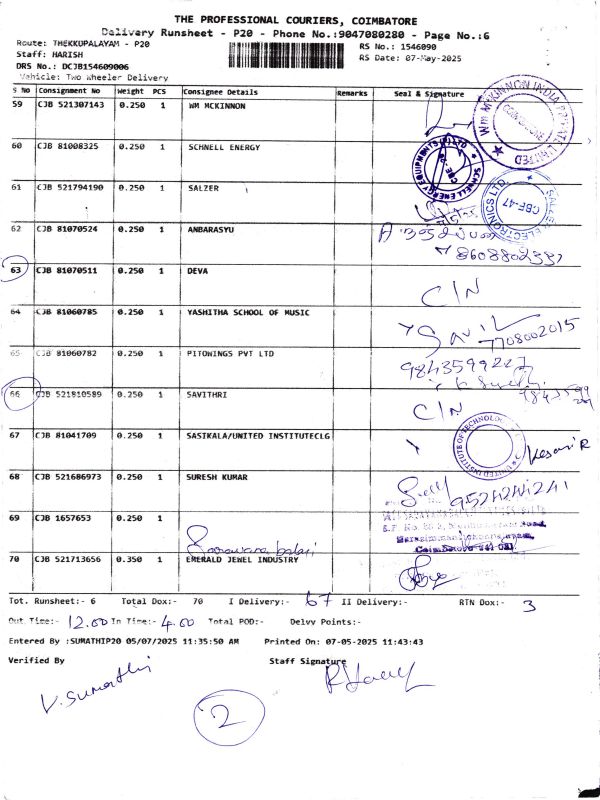 THE PROFESSIONAL COURIERS, COIMBATORE
Delivery Runsheet - P20 - Phone No.:9047080280 - Page No.:6
Route: THEKKUPALAYAM - P20
RS No.: 1546090
Staff: HARISH
RS Date: 07-May-2025
DRS No.: DCJB154609006
Vehicle: Two Wheeler Delivery
S No Consignment No Weight PCS Consignee Details Remarks Seal & Signature
59 CJB 521307143 0.250 1 WM MCKINNON
WM MCKINNON INDIA PRIVATE LIMITED
COIMBATORE
60 CJB 81008325 0.250 1 SCHNELL ENERGY
SCHNELL ENERGY EQUIPMENTS (P) LTD
61 CJB 521794190 0.250 1 SALZER
SALZER ELECTRONICS LTD. CBE-47
62 CJB 81070524 0.250 1 ANBARASYU
8608802331
63 CJB 81070511 0.250 1 DEVA
C/N
64 CJB 81060785 0.250 1 YASHITHA SCHOOL OF MUSIC
7708002015
65 CJB 81060782 0.250 1 PITOWINGS PVT LTD
9843599227
66 CJB 521810589 0.250 1 SAVITHRI
C/N
67 CJB 81041709 0.250 1 SASIKALA/UNITED INSTITUTECLG
UNITED INSTITUTE OF TECHNOLOGY
Kesavi R
68 CJB 521686973 0.250 1 SURESH KUMAR
9524241241
69 CJB 1657653 0.250 1
Saravana balaji
Coimbatore 641 031
70 CJB 521713656 0.350 1 EMERALD JEWEL INDUSTRY
Tot. Runsheet:- 6 Total Dox:- 70 I Delivery:- 67 II Delivery:- RTN Dox:- 3
Out Time:- 12.00 In Time:- 4.00 Total POD:- Delvv Points:-
Entered By :SUMATHIP20 05/07/2025 11:35:50 AM Printed On: 07-05-2025 11:43:43
Verified By Staff Signature
V. Sumathi
2